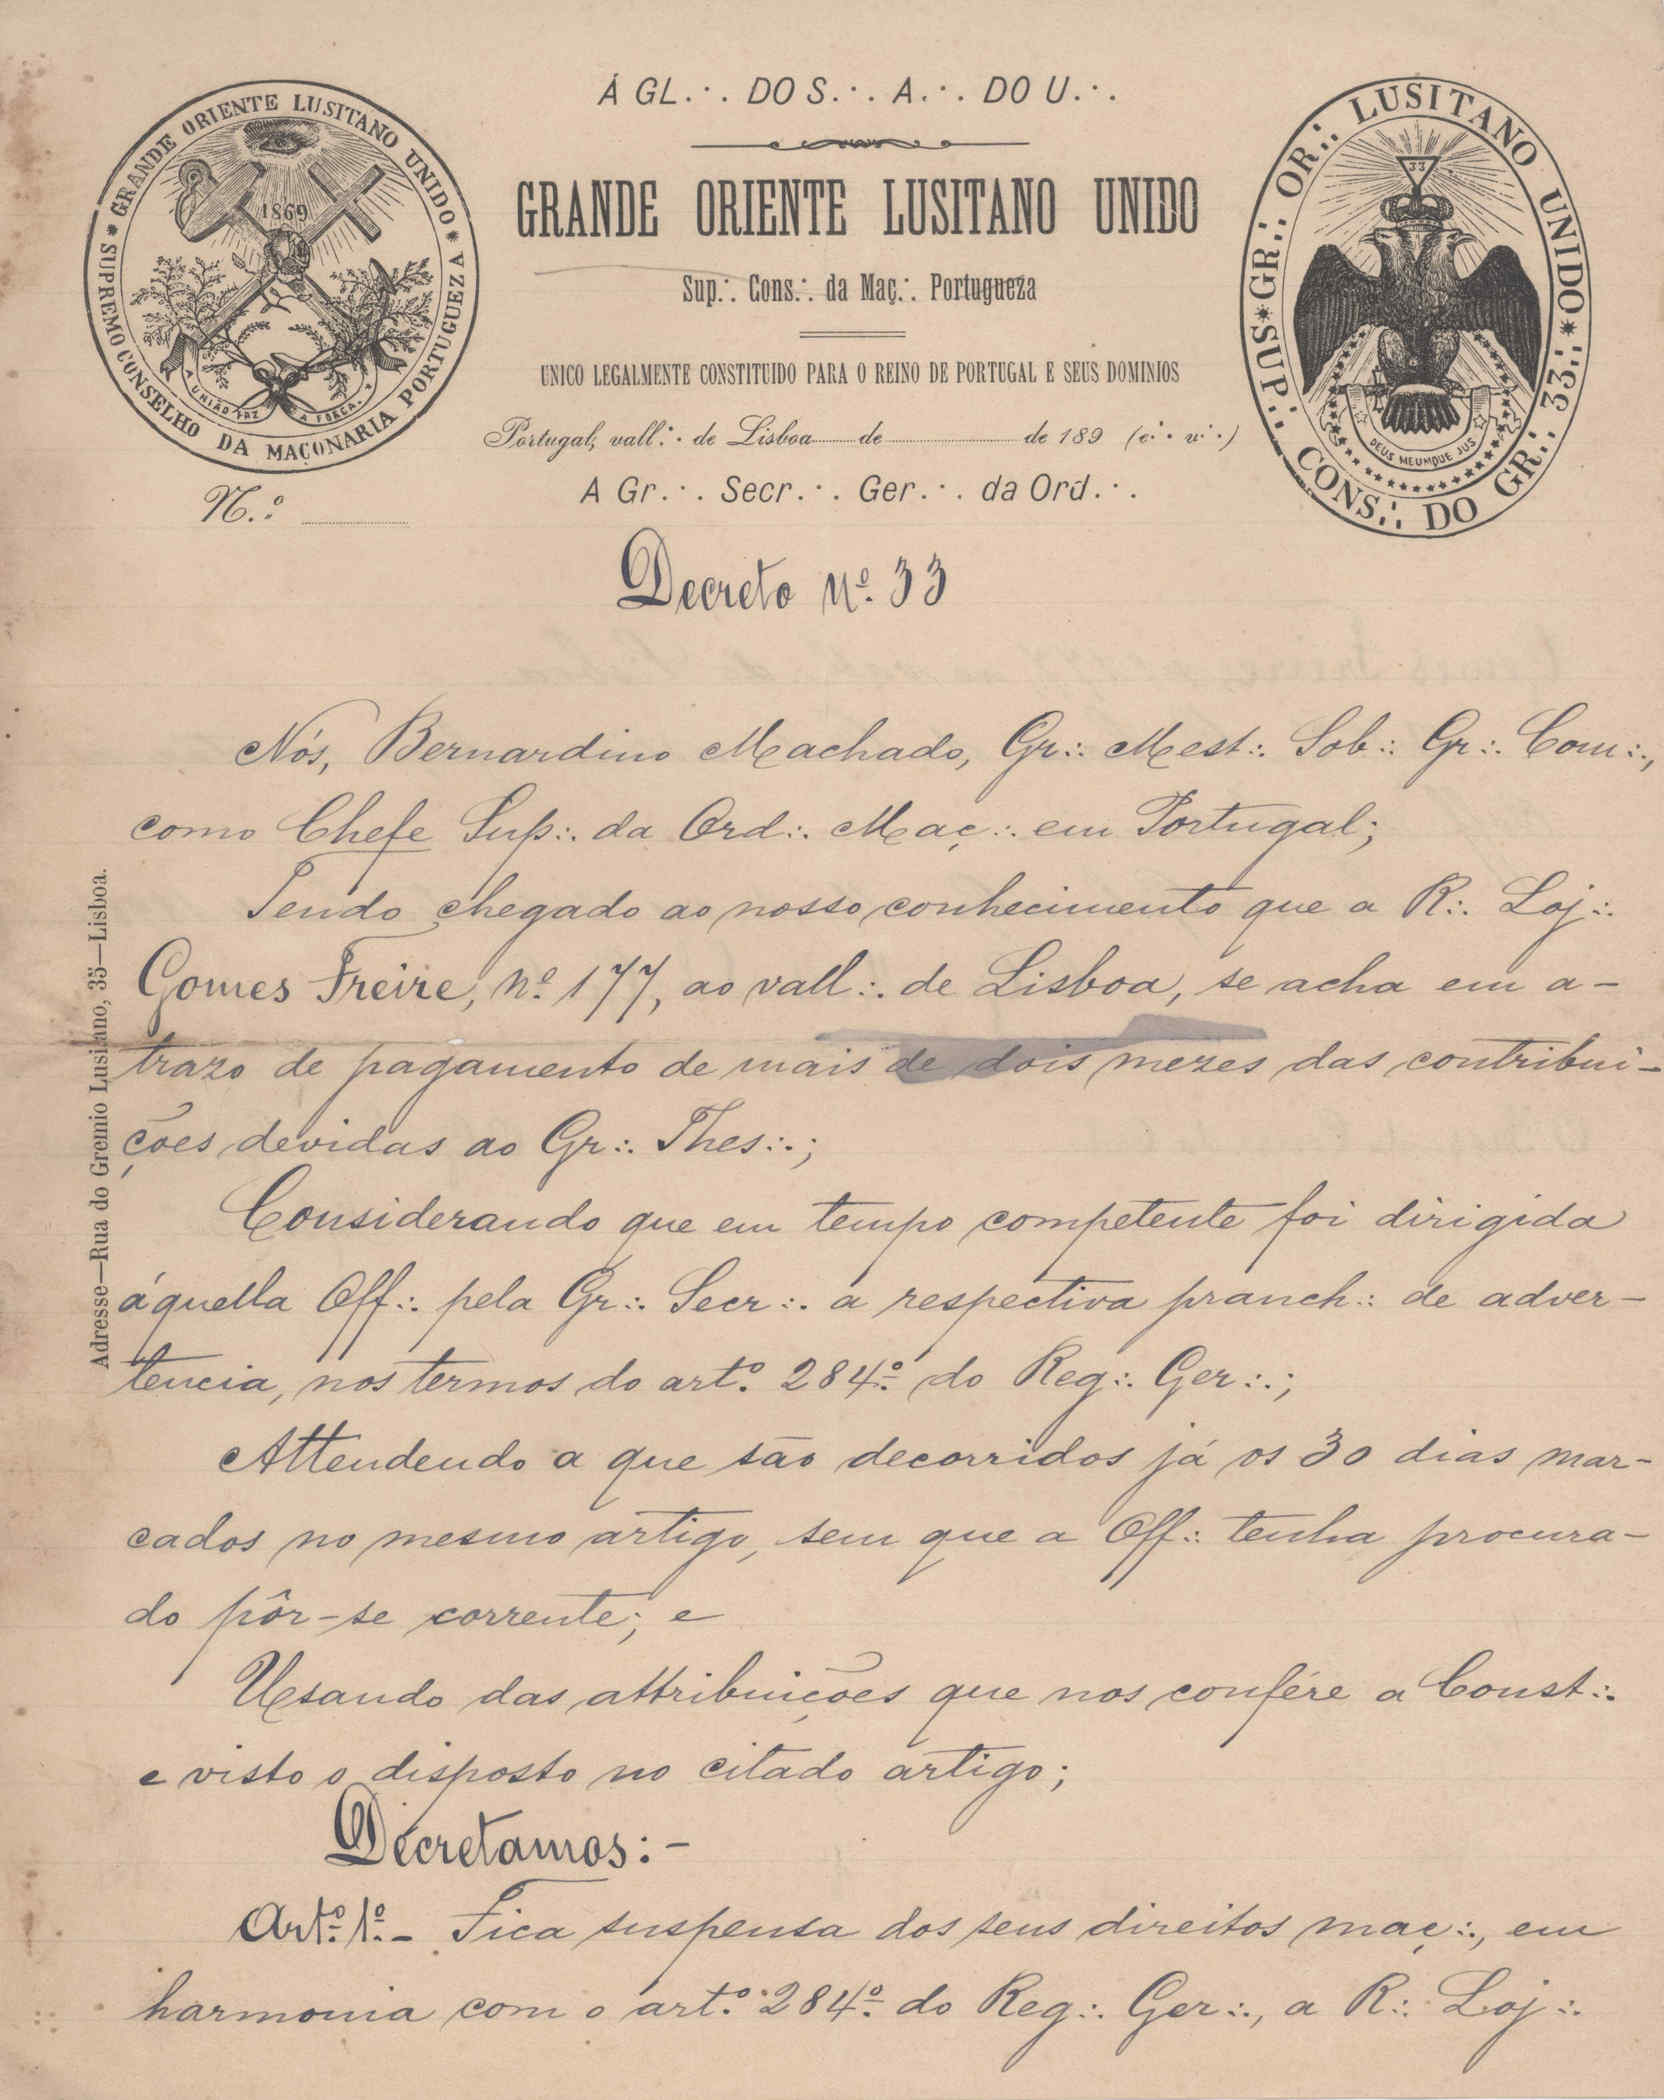 Á GL.·. DO S.·. A.·. DO U.·.
GRANDE ORIENTE LUSITANO UNIDO * SUPREMO CONSELHO DA MAÇONARIA PORTUGUEZA *
1869
A UNIÃO FAZ A FORÇA.
GRANDE ORIENTE LUSITANO UNIDO
Sup.·. Cons.·. da Maç.·. Portugueza
UNICO LEGALMENTE CONSTITUIDO PARA O REINO DE PORTUGAL E SEUS DOMINIOS
Portugal, vall.·. de Lisboa de de 189 (e.·. v.·.)
A Gr.·. Secr.·. Ger.·. da Ord.·.
SUP.·. CONS.·. DO GR.·. 33.·. * GR.·. OR.·. LUSITANO UNIDO *
33
DEUS MEUMQUE JUS
N.º
Decreto Nº. 33
Nós, Bernardino Machado, Gr.·. Mest.·. Sob.·. Gr.·. Com.·.,
como Chefe Sup.·. da Ord.·. Maç.·. em Portugal;
Tendo chegado ao nosso conhecimento que a R.·. Loj.·.
Gomes Freire, nº. 177, ao vall.·. de Lisboa, se acha em a-
trazo de pagamento de mais de dois mezes das contribui-
ções devidas ao Gr.·. Thes.·.;
Considerando que em tempo competente foi dirigida
áquella Off.·. pela Gr.·. Secr.·. a respectiva pranch.·. de adver-
tencia, nos termos do artº. 284º. do Reg.·. Ger.·.;
Attendendo a que são decorridos já os 30 dias mar-
cados no mesmo artigo, sem que a Off.·. tenha procura-
do pôr-se corrente; e
Usando das attribuições que nos confére a Const.·.
e visto o disposto no citado artigo;
Decretamos:-
Artº. 1º.- Fica suspensa dos seus direitos maç.·., em
harmonia com o artº. 284º. do Reg.·. Ger.·., a R.·. Loj.·.
Adresse—Rua do Gremio Lusitano, 35—Lisboa.